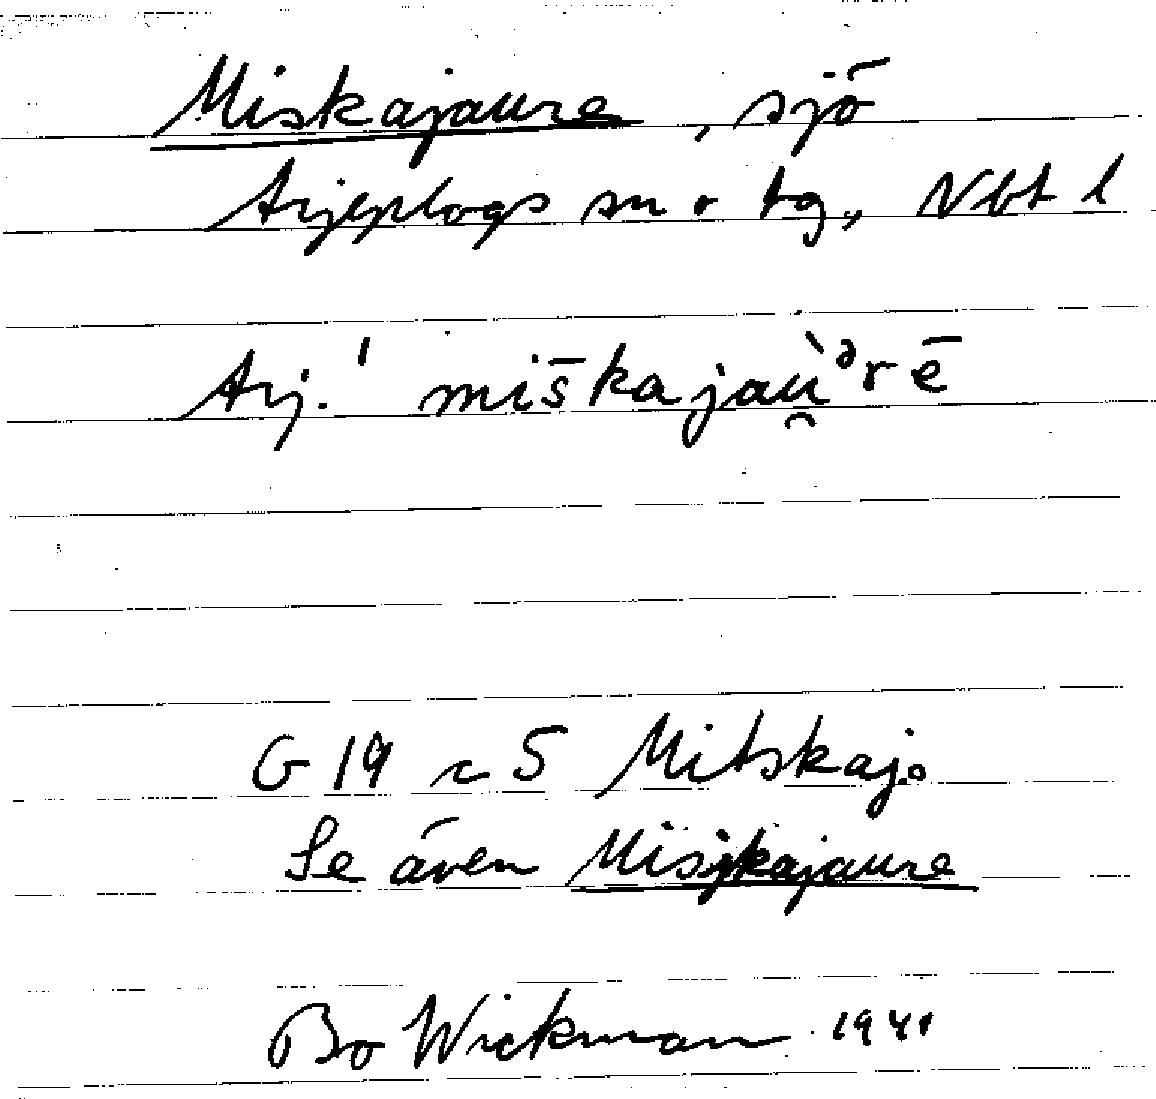 Miskajaure, sjö
Arjeplogs sn o tg, Nbt l
Arj. ˈmiš̄kajaù̯ᵊrē
G 19 c 5 Mitskaj.
Se även Misjkajaure
Bo Wickman 1941